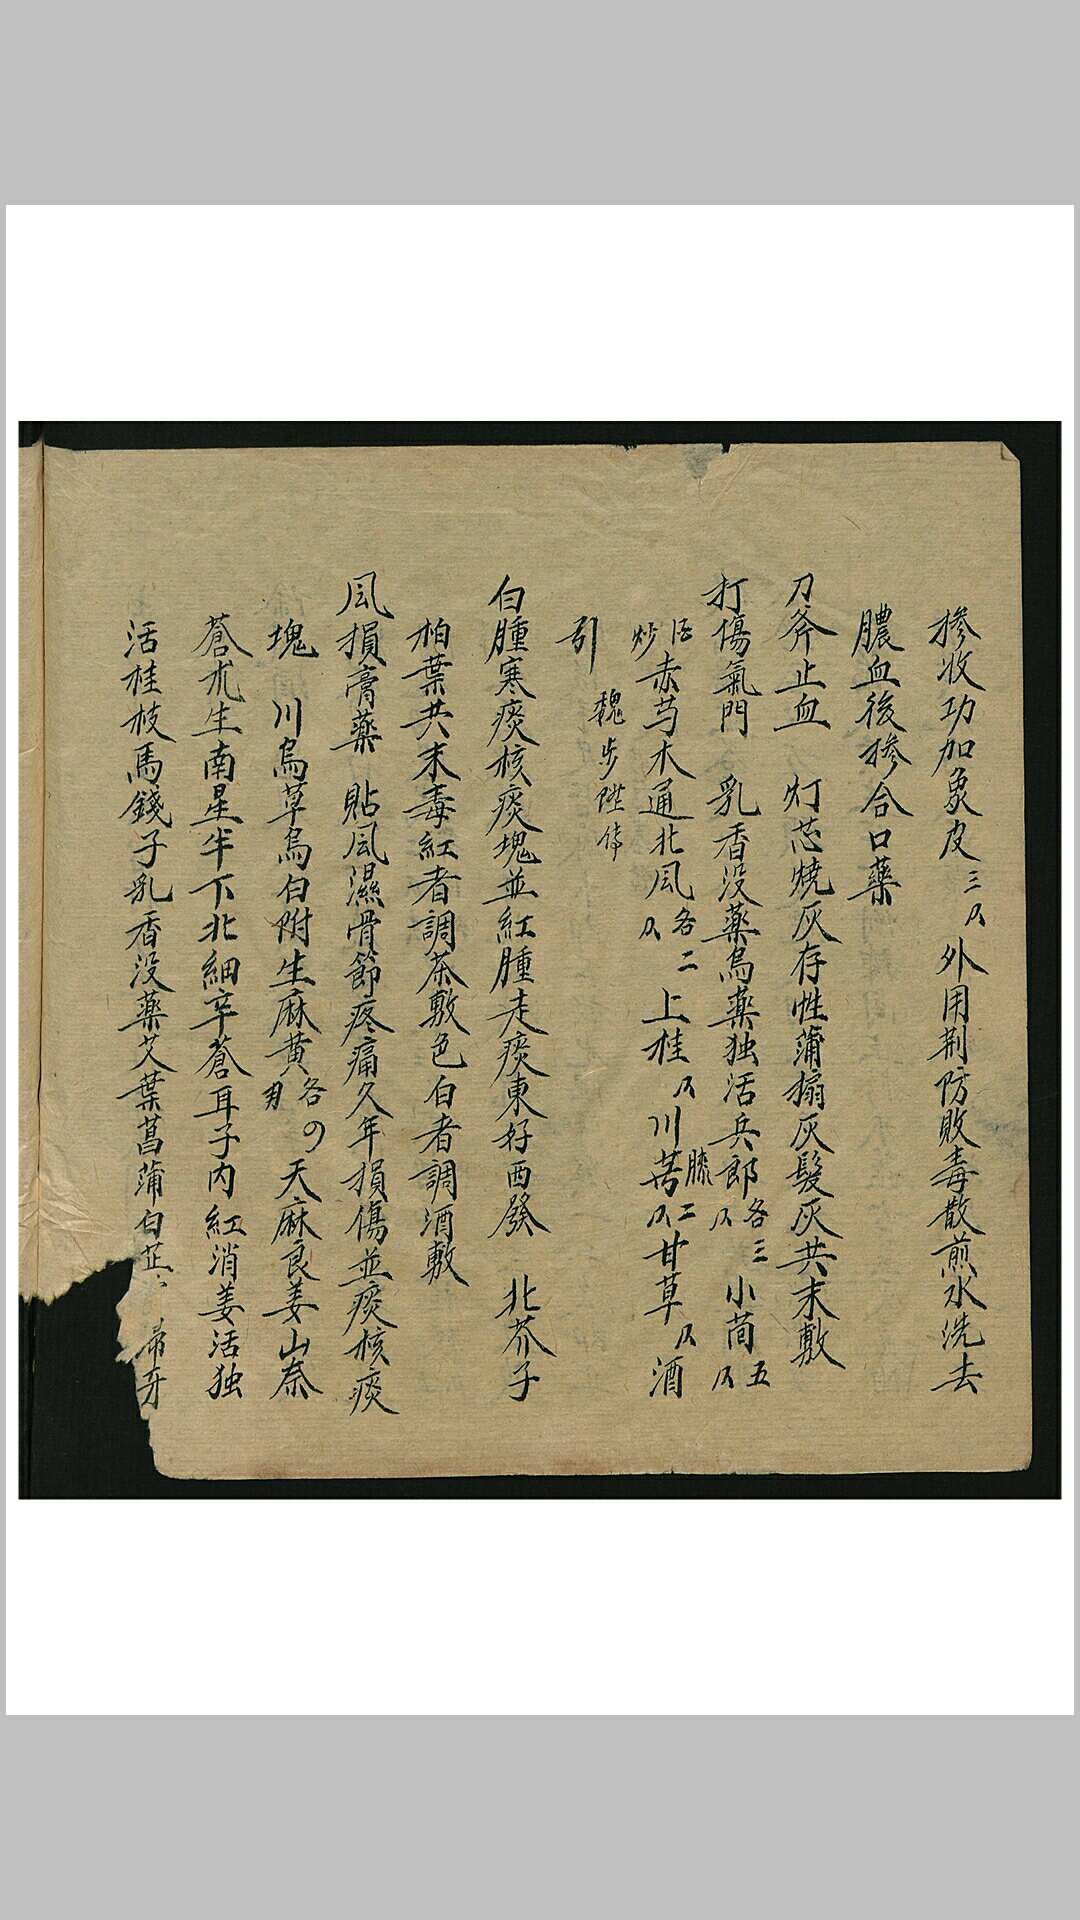 掺收功加象皮三㕮外用荆防敗毒散煎水洗去
膿血後掺合口藥
刀斧止血　灯芯燒灰存性蒲搧灰髮灰共末敷
打傷氣門　乳香没藥烏藥独活兵郎各三㕮小茴五㕮
酒炒赤芍木通北風各二㕮上桂㕮川芎二㕮膝甘草㕮酒
引
魏步陞傳
白腫寒痰核痰塊並紅腫走痰東好西發　北芥子
柏葉共末毒紅者調茶敷色白者調酒敷
風損膏藥　貼風濕骨節疼痛久年損傷並痰核痰
塊　川烏草烏白附生麻黄各天麻良姜山奈
蒼朮生南星半下北細辛蒼耳子内紅消姜活独
活桂枝馬錢子乳香没藥艾葉菖蒲白芷牙